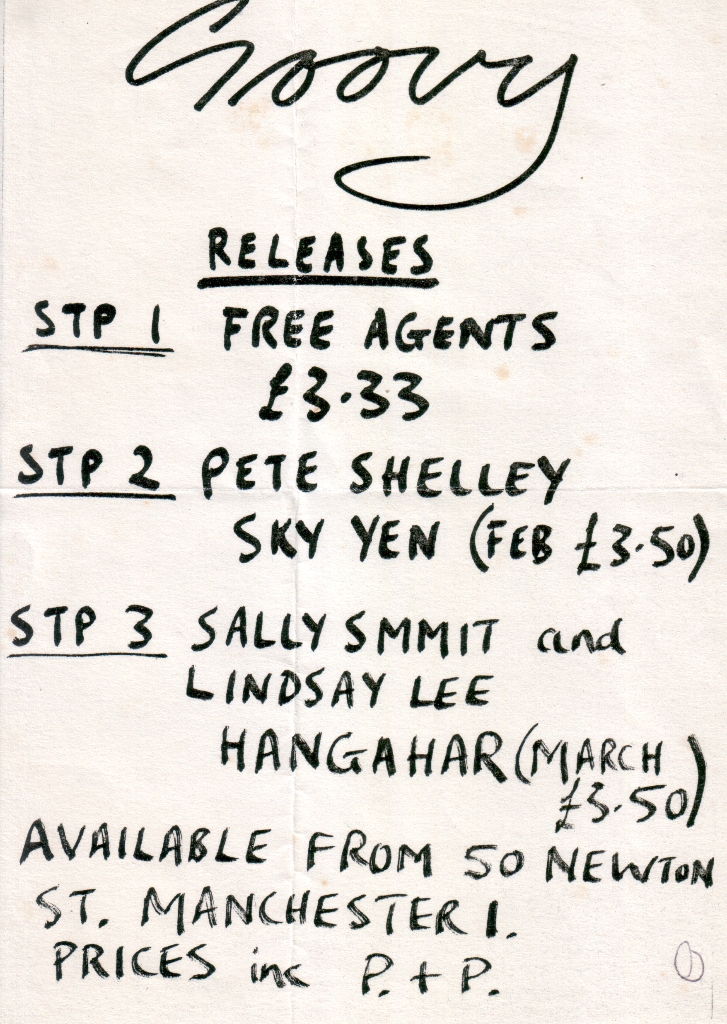 Groovy
RELEASES
STP 1 FREE AGENTS
£3.33
STP 2 PETE SHELLEY
SKY YEN (FEB £3.50)
STP 3 SALLY SMMIT and
LINDSAY LEE
HANGAHAR (MARCH
£3.50)
AVAILABLE FROM 50 NEWTON
ST. MANCHESTER 1.
PRICES inc P. + P.